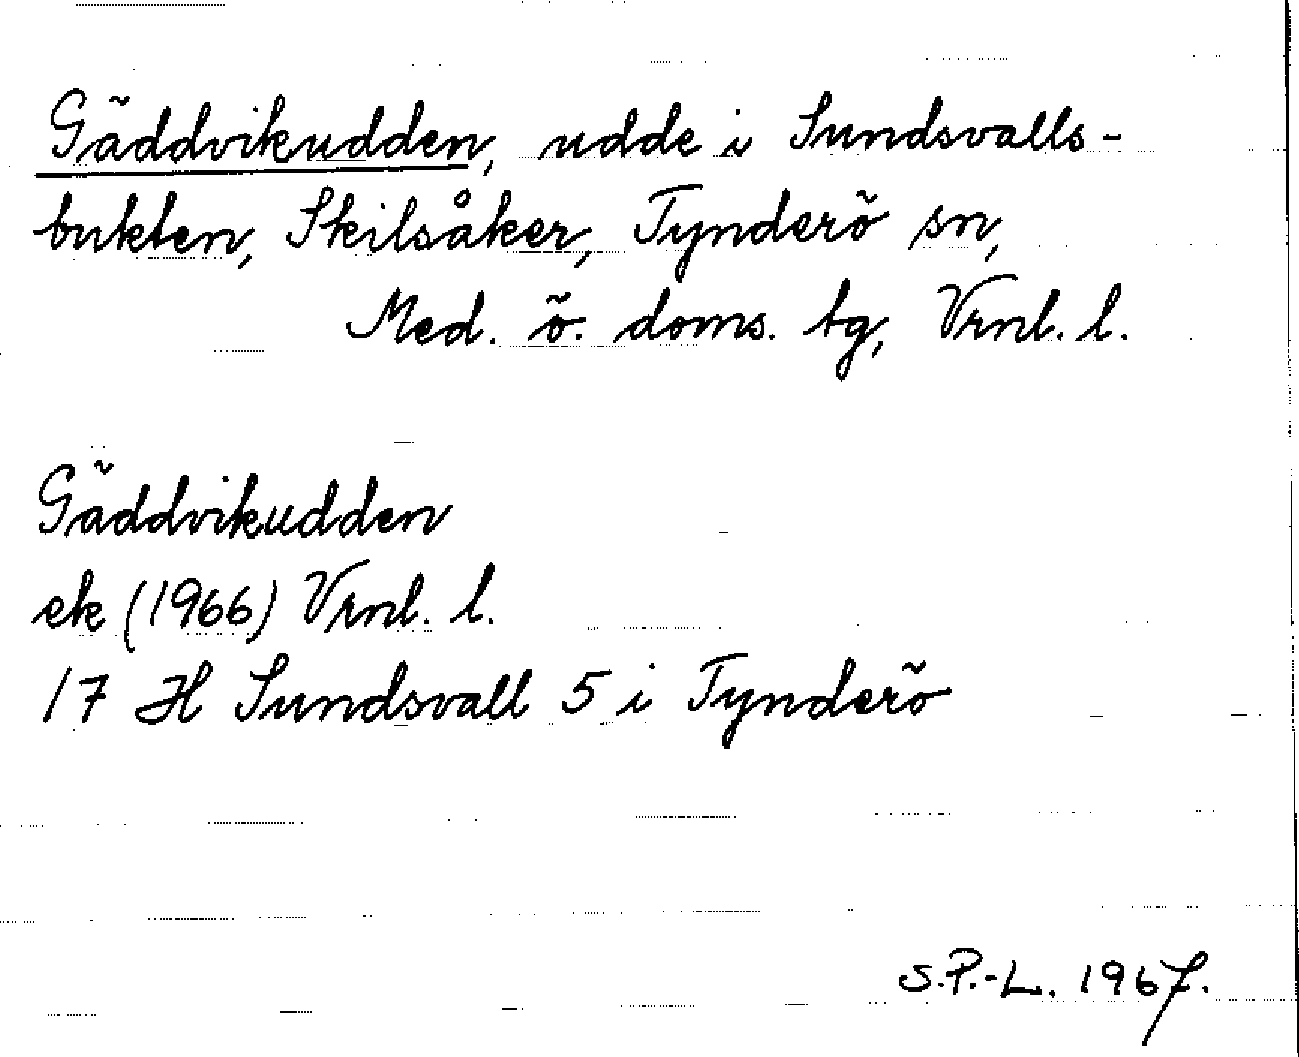 Gäddvikudden, udde i Sundsvalls-
bukten, Skilsåker, Tynderö sn,
Med. ö. doms. tg, Vrnl. l.
Gäddvikudden
ek (1966) Vrnl. l.
17 H Sundsvall 5 i Tynderö
S.P.-L. 1967.